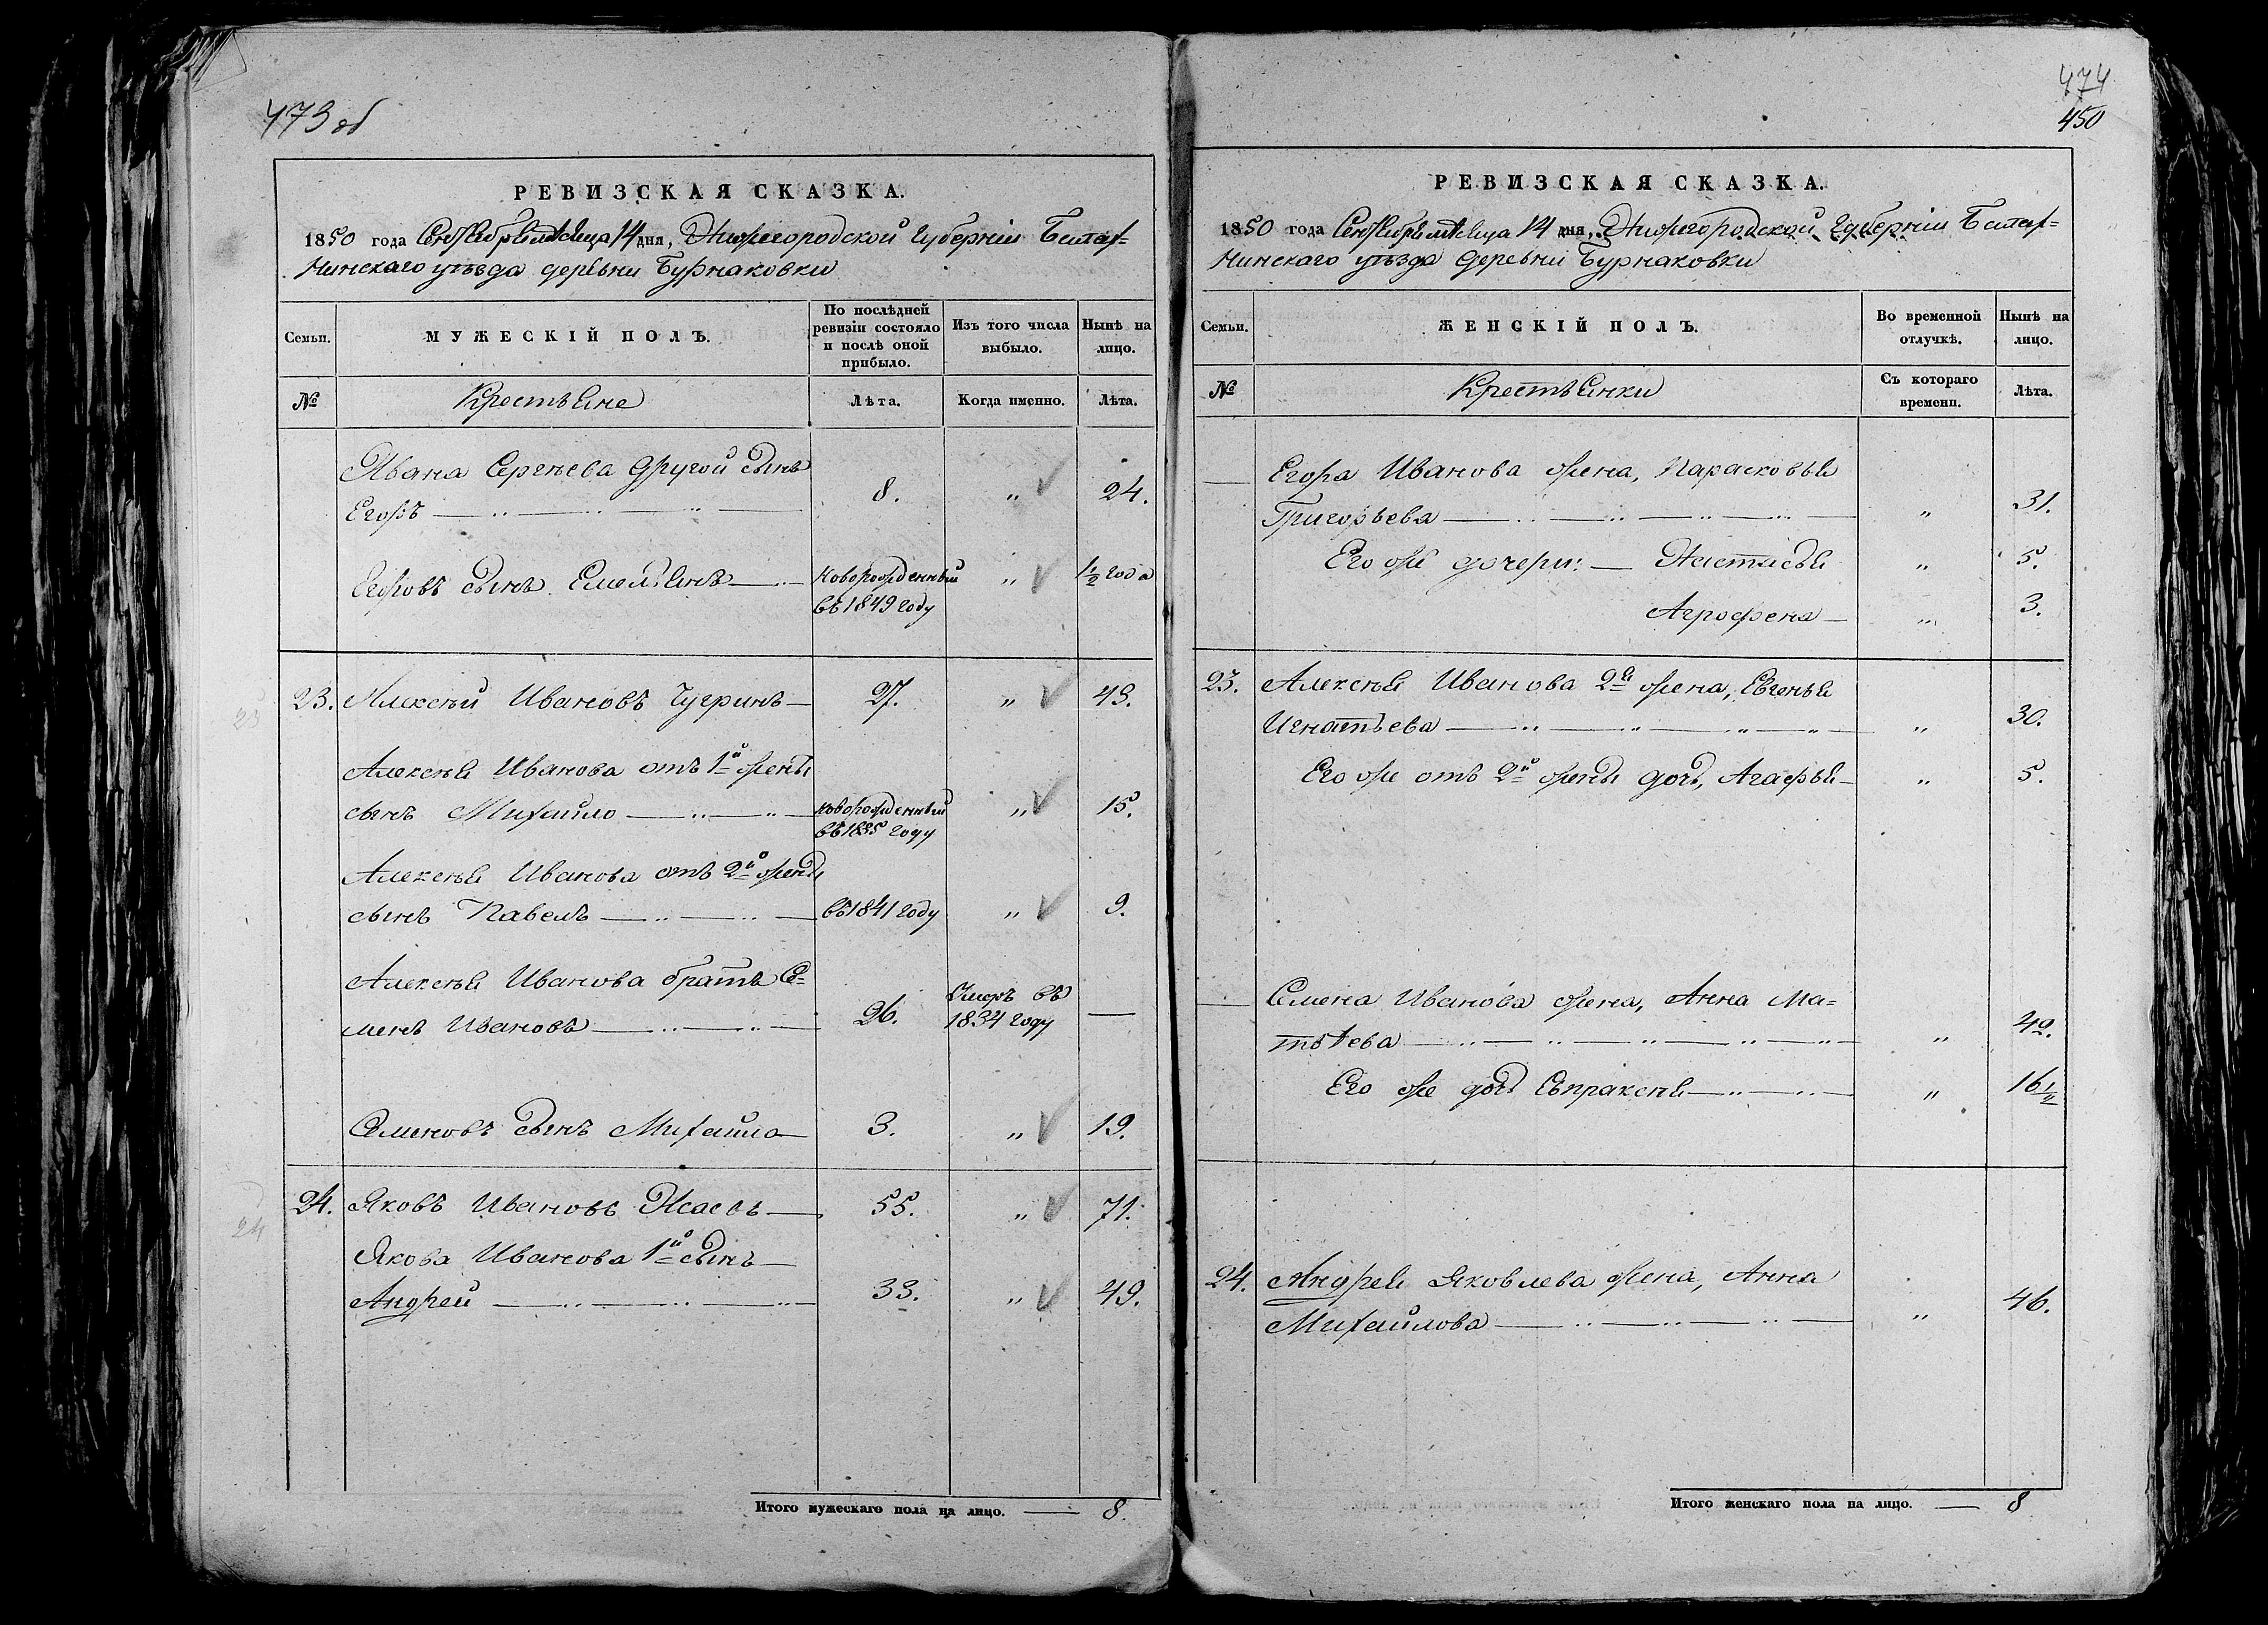 473 об
РЕВИЗСКАЯ СКАЗКА.
1850 года Сентября месяца 14 дня, Нижегородской Губерніи Балах-
нинскаго уѣзда деревни Бурнаковки
Семьи. МУЖЕСКІЙ ПОЛЪ. По послѣдней ревизіи состояло и послѣ оной прибыло. Изъ того числа выбыло. Нынѣ на лицо.
№ Крестьяне Лѣта. Когда именно. Лѣта.
Ивана Сергѣева другой сынъ
Егоръ 8. „ 24.
Егоровъ сынъ Емельянъ новорожденный въ 1849 году „ 1/2 года
23. Алексѣй Ивановъ Чугринъ 27. „ 43.
Алексѣя Иванова отъ 1й жены
сынъ Михайло новорожденный въ 1835 году „ 15.
Алексѣя Иванова отъ 2й жены
сынъ Павелъ въ 1841 году „ 9.
Алексѣя Иванова братъ Се=
менъ Ивановъ 26. Умеръ въ 1834 году —
Семеновъ сынъ Михайло 3. „ 19.
24. Яковъ Ивановъ 55. „ 71.
Якова Иванова 1й сынъ
Андрей 33. „ 49.
Итого мужескаго пола на лицо. 8.
474
450
РЕВИЗСКАЯ СКАЗКА.
1850 года Сентября месяца 14 дня, Нижегородской Губерніи Балах=
нинскаго уѣзда деревни Бурнаковки
Семьи. ЖЕНСКІЙ ПОЛЪ. Во временной отлучкѣ. Нынѣ на лицо.
№ Крестьянки Съ котораго времени. Лѣта.
Егора Иванова жена, Парасковья
Григорьева „ 31.
Его же дочери: Настасья „ 5.
Агрофена „ 3.
23. Алексѣя Иванова 2я жена, Евгенья
Игнатьева „ 30.
Его же отъ 2й жены дочь, Агафья „ 5.
Семена Иванова жена, Анна Ма=
твѣева „ 42.
Его же дочь Евпраксея „ 16 1/2
24. Андрея Яковлева жена, Анна
Михайлова „ 46.
Итого женскаго пола на лицо. 8